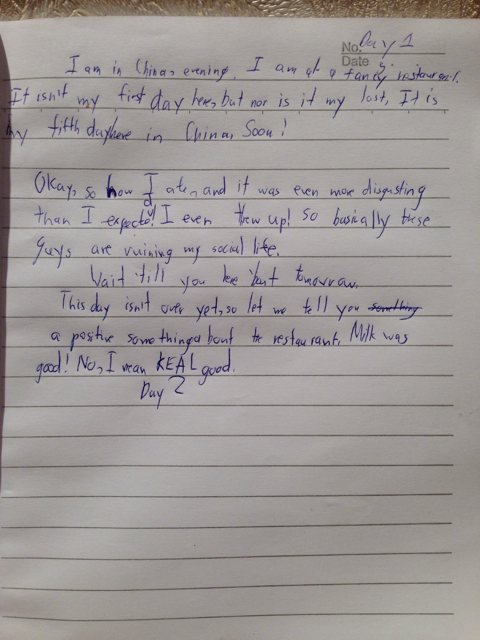 No. Day 1
Date
I am in China, evening. I am at a fancy restaurant.
It isn't my first day here, but nor is it my last. It is
my fifth day here in China. Soon!
Okay, so how I ate, and it was even more disgusting
than I expected! I even thew up! So basically these
guys are ruining my social life.
Wait till you here 'bout tomorrow.
This day isn't over yet, so let me tell you something
a positive something about the restaurant. Milk was
good! No, I mean REAL good.
Day 2